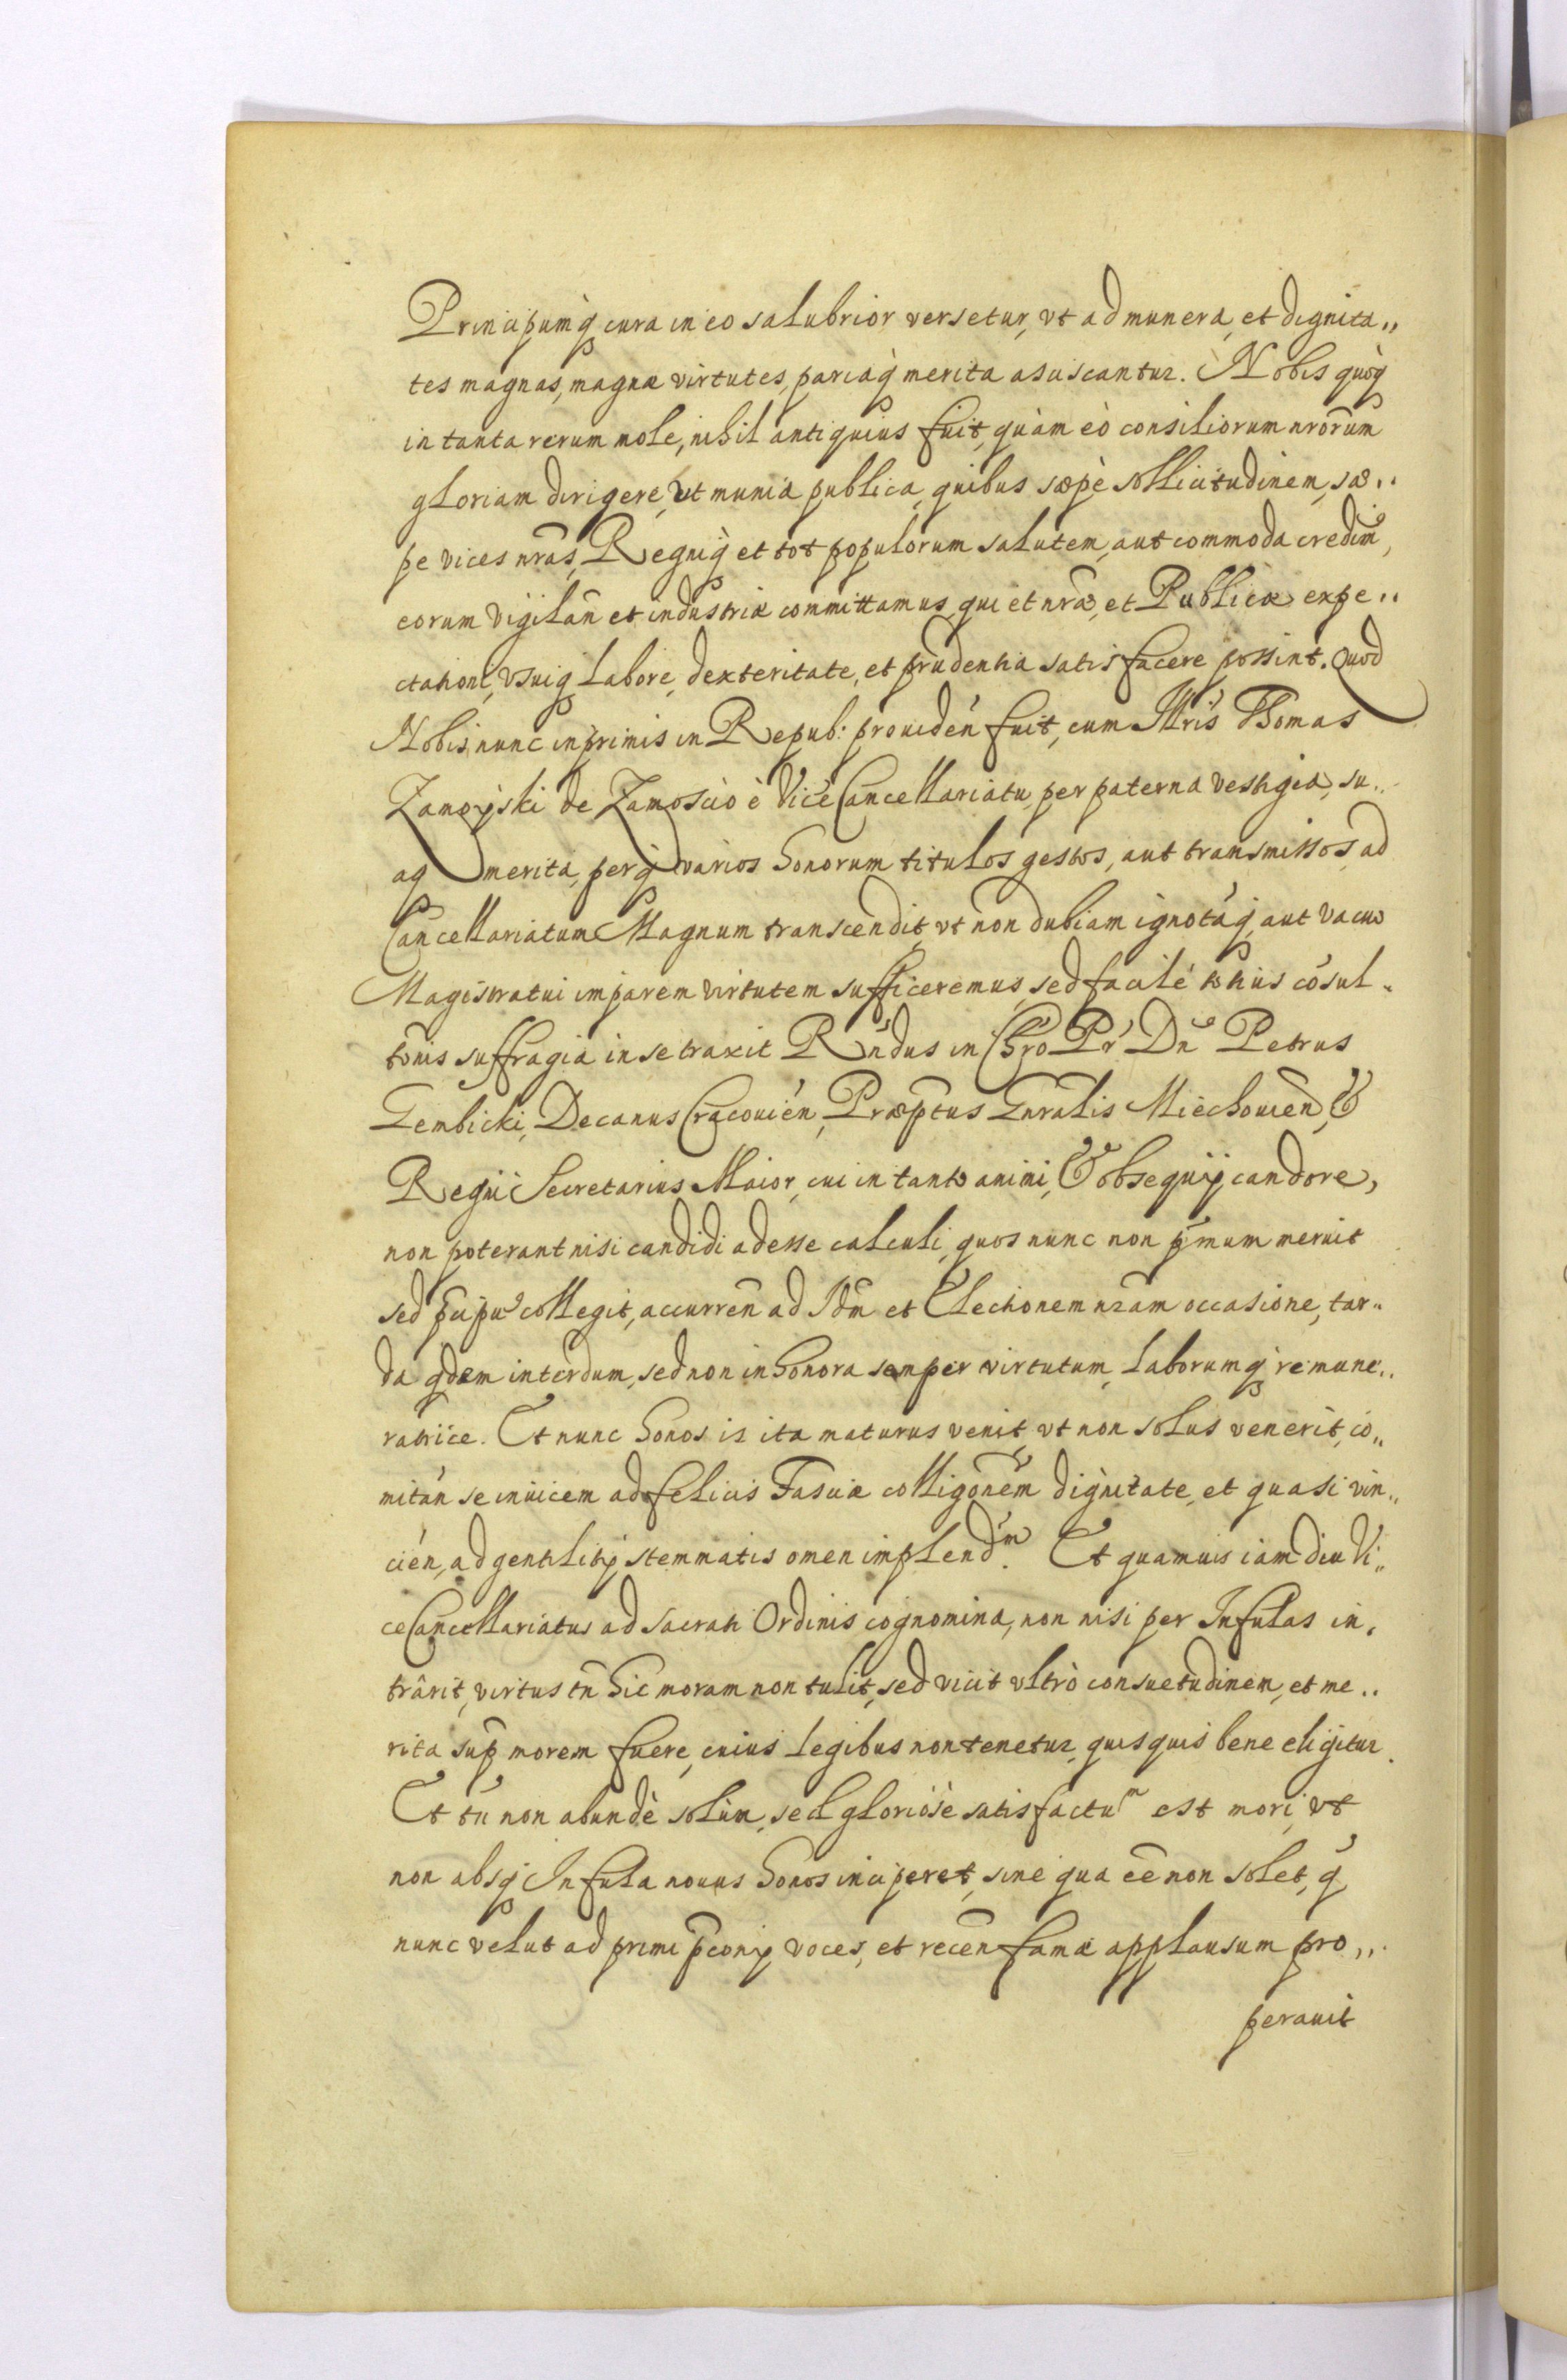 Principumq́ cura in eo salubrior versetur, vt ad munera, et dignita„
tes magnas, magnæ virtutes, pariaq́ merita asciscantur. Nobis quoq́
in tanta rerum mole, nihil antiquius fuit, quàm eò consiliorum nrõrum
gloriam dirigere, vt munia publica, quibus sæpè sollicitudinem, sæ„
pe vices nrãs, Regniq́ et tot populorum salutem, aut commoda credim̃,
eorum vigilañ et industriæ committamus, qui et nrãe, et Publicæ expe„
ctationi, vsuiq́ labore, dexteritate, et prudentia satisfacere possint. Quod
Nobis nunc inprimis in Repub: prouideń fuit, cum Illrís Thomas
Zamoyski de Zamoscio è ViceCancellariatu, per paterna vestigia, su„
aq́ merita, perq́ varios honorum titulos gestos, aut transmissos, ad
Cancellariatum Magnum transcendit, vt non dubiam ignotáq́, aut vacuo
Magistratui imparem virtutem sufficeremus, sed facilè totius cósul„
tõnis suffragia in se traxit Rńdus in Chrõ Pŕ Dñ Petrus
Gembicki, Decanus Cracouień, Præptũs Gnrãlis Miechouień, &
Regni Secretarius Maior, cui in tanto animi, & obsequij candore,
non poterant nisi candidi adesse calculi, quos nunc non p̃mum meruit
sed p̃cipuè collegit, accurreñ ad Idm̃ et Electionem nrãm occasione, tar„
da qdem interdum, sed non inhonora semper virtutum, laborumq́ remune„
ratrice. Et nunc honos is ita maturus venit, vt non solus venerit, co„
mitań se inuicem ad felicis Fasciæ colligõnem dignitate, et quasi vin„
cień, ad gentilitij stemmatis omen implend̃ᵐ. Et quamuis iam diu Vi„
ceCancellariatus ad sacrati Ordinis cognomina, non nisi per Infulas in„
trârit, virtus tñ hic moram non tulit, sed vicit vltrò consuetudinem, et me„
rita sup̃ morem fuere, cuius legibus non tenetur, quisquis bene eligitur.
Et tñ non abundè solùm, sed gloriosè satisfactuᵐ est mori, vt
non absq́ Infula nouus honos inciperet, sine qua eẽ non solet, q́
nunc velut ad primi p̃conij voces, et receñ famæ applausum pro„
perauit